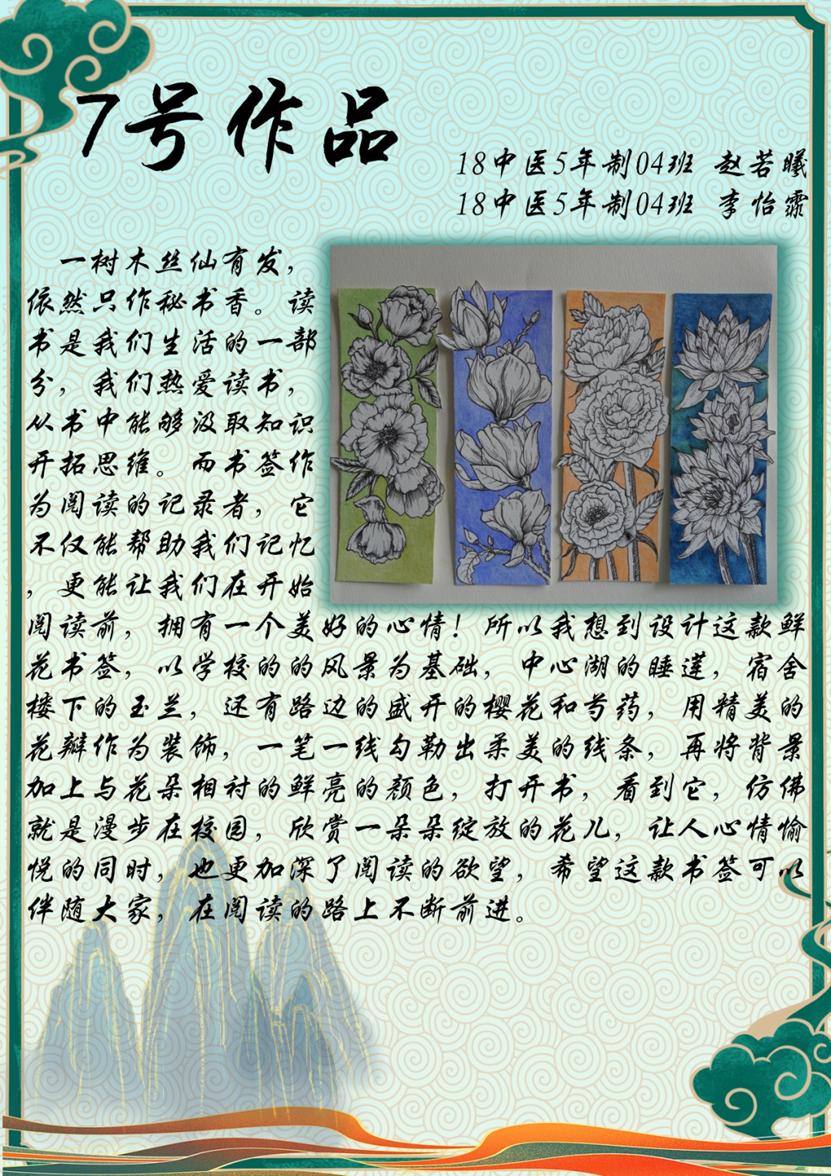 7号作品
18中医5年制04班 赵若曦
18中医5年制04班 李怡霖
一树木丝仙有发，
依然只作秘书香。读
书是我们生活的一部
分，我们热爱读书，
从书中能够汲取知识
开拓思维。而书签作
为阅读的记录者，它
不仅能帮助我们记忆
，更能让我们在开始
阅读前，拥有一个美好的心情！所以我想到设计这款鲜
花书签，以学校的的风景为基础，中心湖的睡莲，宿舍
楼下的玉兰，还有路边的盛开的樱花和芍药，用精美的
花瓣作为装饰，一笔一线勾勒出柔美的线条，再将背景
加上与花朵相衬的鲜亮的颜色，打开书，看到它，仿佛
就是漫步在校园，欣赏一朵朵绽放的花儿，让人心情愉
悦的同时，也更加深了阅读的欲望，希望这款书签可以
伴随大家，在阅读的路上不断前进。